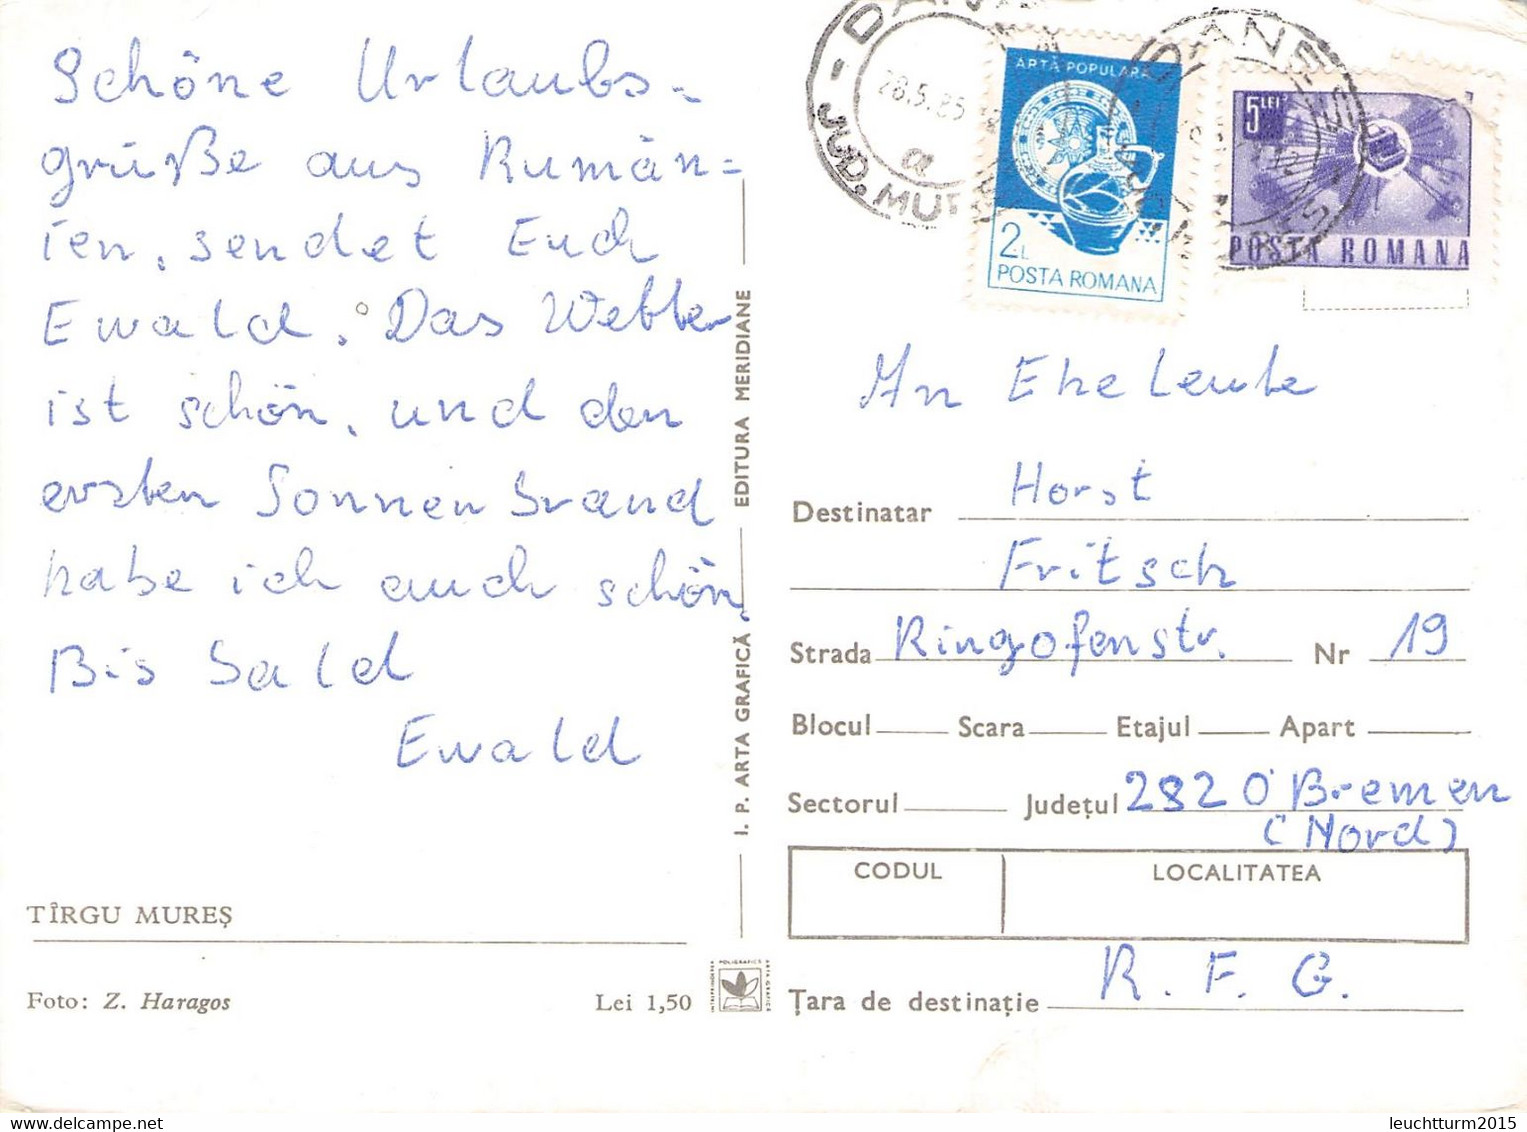 Schöne Urlaubs-
grüße aus Rumän-
ien, sendet Euch
Ewald. Das Wetter
ist schön, und den
ersten Sonnenbrand
habe ich auch schön.
Bis bald
Ewald
TÎRGU MUREȘ
Foto: Z. Haragos
Lei 1,50
I. P. ARTA GRAFICĂ
EDITURA MERIDIANE
28.5.85
JUD. MUREȘ
ARTĂ POPULARĂ
2L
POSTA ROMANA
5 LEI
POSTA ROMANA
An Eheleute
Destinatar Horst
Fritsch
Strada Ringofenstr. Nr 19
Blocul Scara Etajul Apart
Sectorul Județul 2820 Bremen
(Nord)
CODUL LOCALITATEA
Țara de destinație R. F. G.
leuchtturm2015